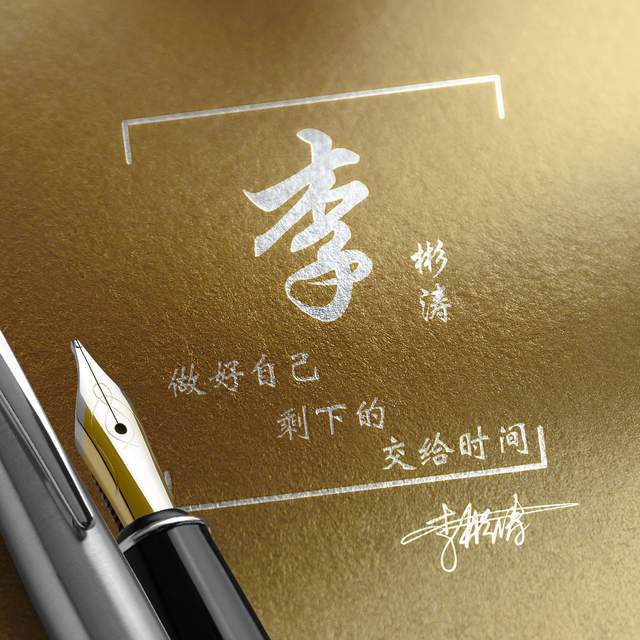 李
彬
涛
做好自己
剩下的
交给时间
李彬涛